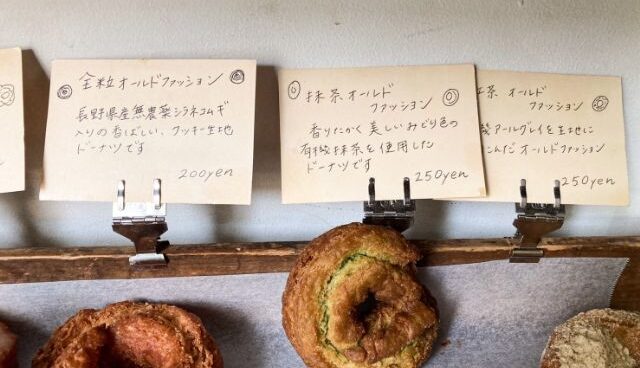 全粒オールドファッション
長野県産無農薬シラネコムギ
入りの香ばしい、クッキー生地
ドーナツです
200yen
抹茶オールド
ファッション
香りたかく美しいみどり色の
有機抹茶を使用した
ドーナツです
250yen
茶オールド
ファッション
アールグレイを生地に
こんだオールドファッション
250yen